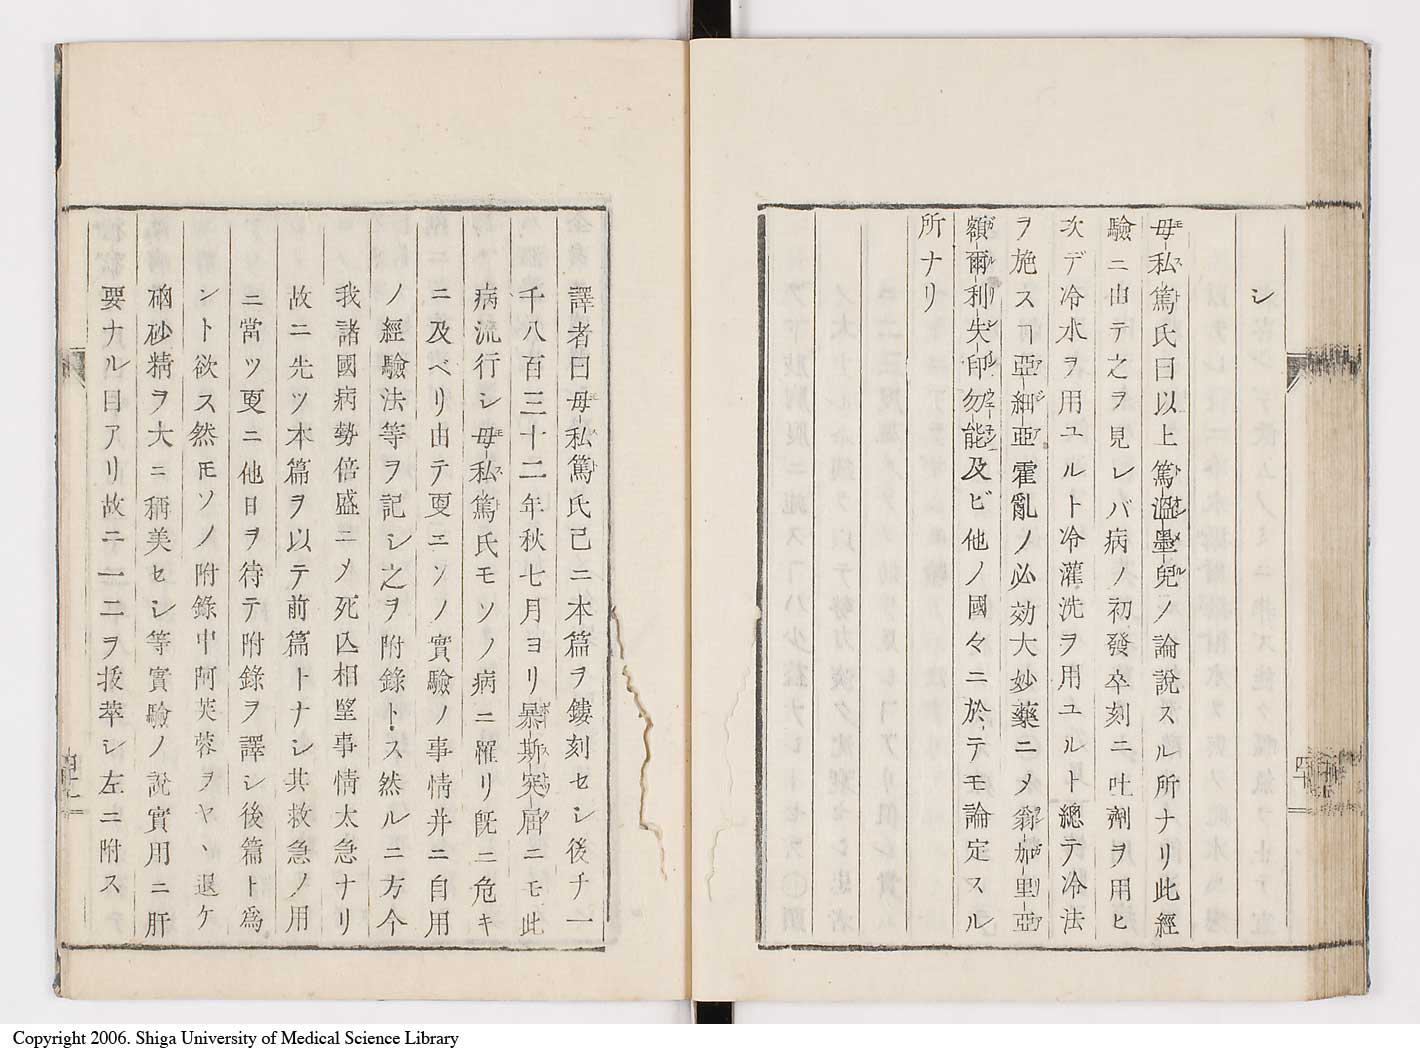 シ
毋私篤氏曰以上篤溫墨兒ノ論說スル所ナリ此經
驗ニ由テ之ヲ見レバ病ノ初發卒刻ニ吐劑ヲ用ヒ
次デ冷水ヲ用ユルト冷灌洗ヲ用ユルト總テ冷法
ヲ施スヿ亞細亞霍亂ノ必効大妙藥ニメ翁加里亞
額爾利失印勿能及ビ他ノ國々ニ於テモ論定スル
所ナリ
四十
譯者曰毋私篤氏已ニ本篇ヲ鏤刻セシ後チ一
千八百三十二年秋七月ヨリ暴斯突屈ニモ此
病流行シ毋私篤氏モソノ病ニ罹リ旣ニ危キ
ニ及ベリ由テ更エソノ實驗ノ事情并ニ自用
ノ經驗法等ヲ記シ之ヲ附錄トス然ルニ方今
我諸國病勢倍盛ニメ死亡相望事情太急ナリ
故ニ先ツ本篇ヲ以テ前篇トナシ其救急ノ用
ニ當ツ更ニ他日ヲ待テ附錄ヲ譯シ後篇ト爲
ント欲ス然モソノ附錄中阿芙蓉ヲヤヽ退ケ
硇砂精ヲ大ニ稱美セシ等實驗ノ說實用ニ肝
要ナル目アリ故ニ一二ヲ拔萃シ左ニ附ス
四十一
Copyright 2006. Shiga University of Medical Science Library